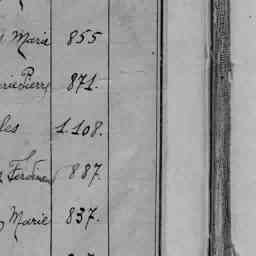 Marie 855
Pierre 871.
les 1.108.
887.
Marie 837.